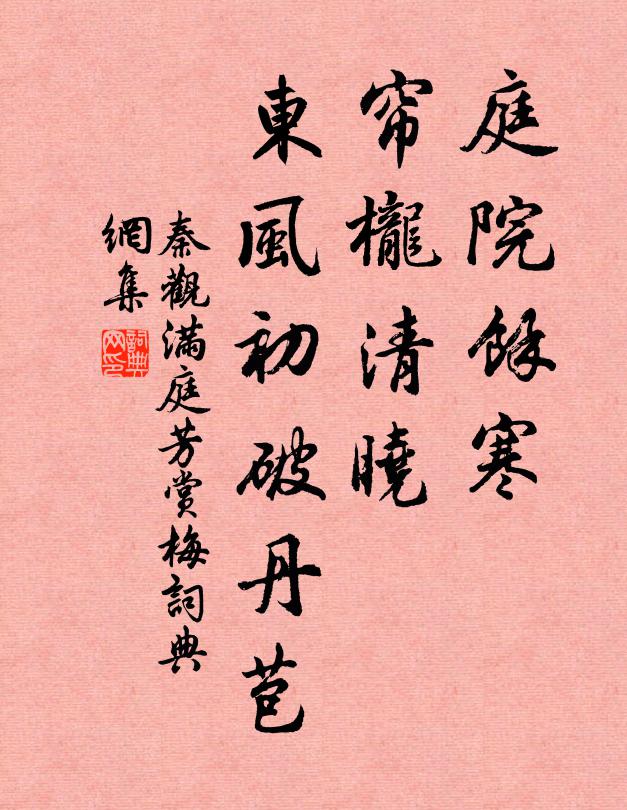 庭院餘寒
帘櫳清曉
東風初破丹苞
秦觀滿庭芳賞梅詞典
網集
詞典
网印